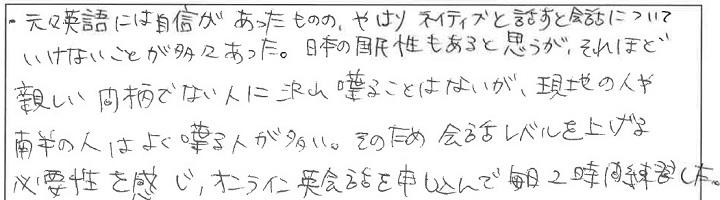 ・元々英語には自信があったものの、やはりネイティブと話すと会話について
いけないことが多々あった。日本の国民性もあると思うが、それほど
親しい間柄でない人に沢山喋ることはないが、現地の人や
南半の人はよく喋る人が多い。そのため会話レベルを上げる
必要性を感じ、オンライン英会話を申し込んで毎日2時間練習した。